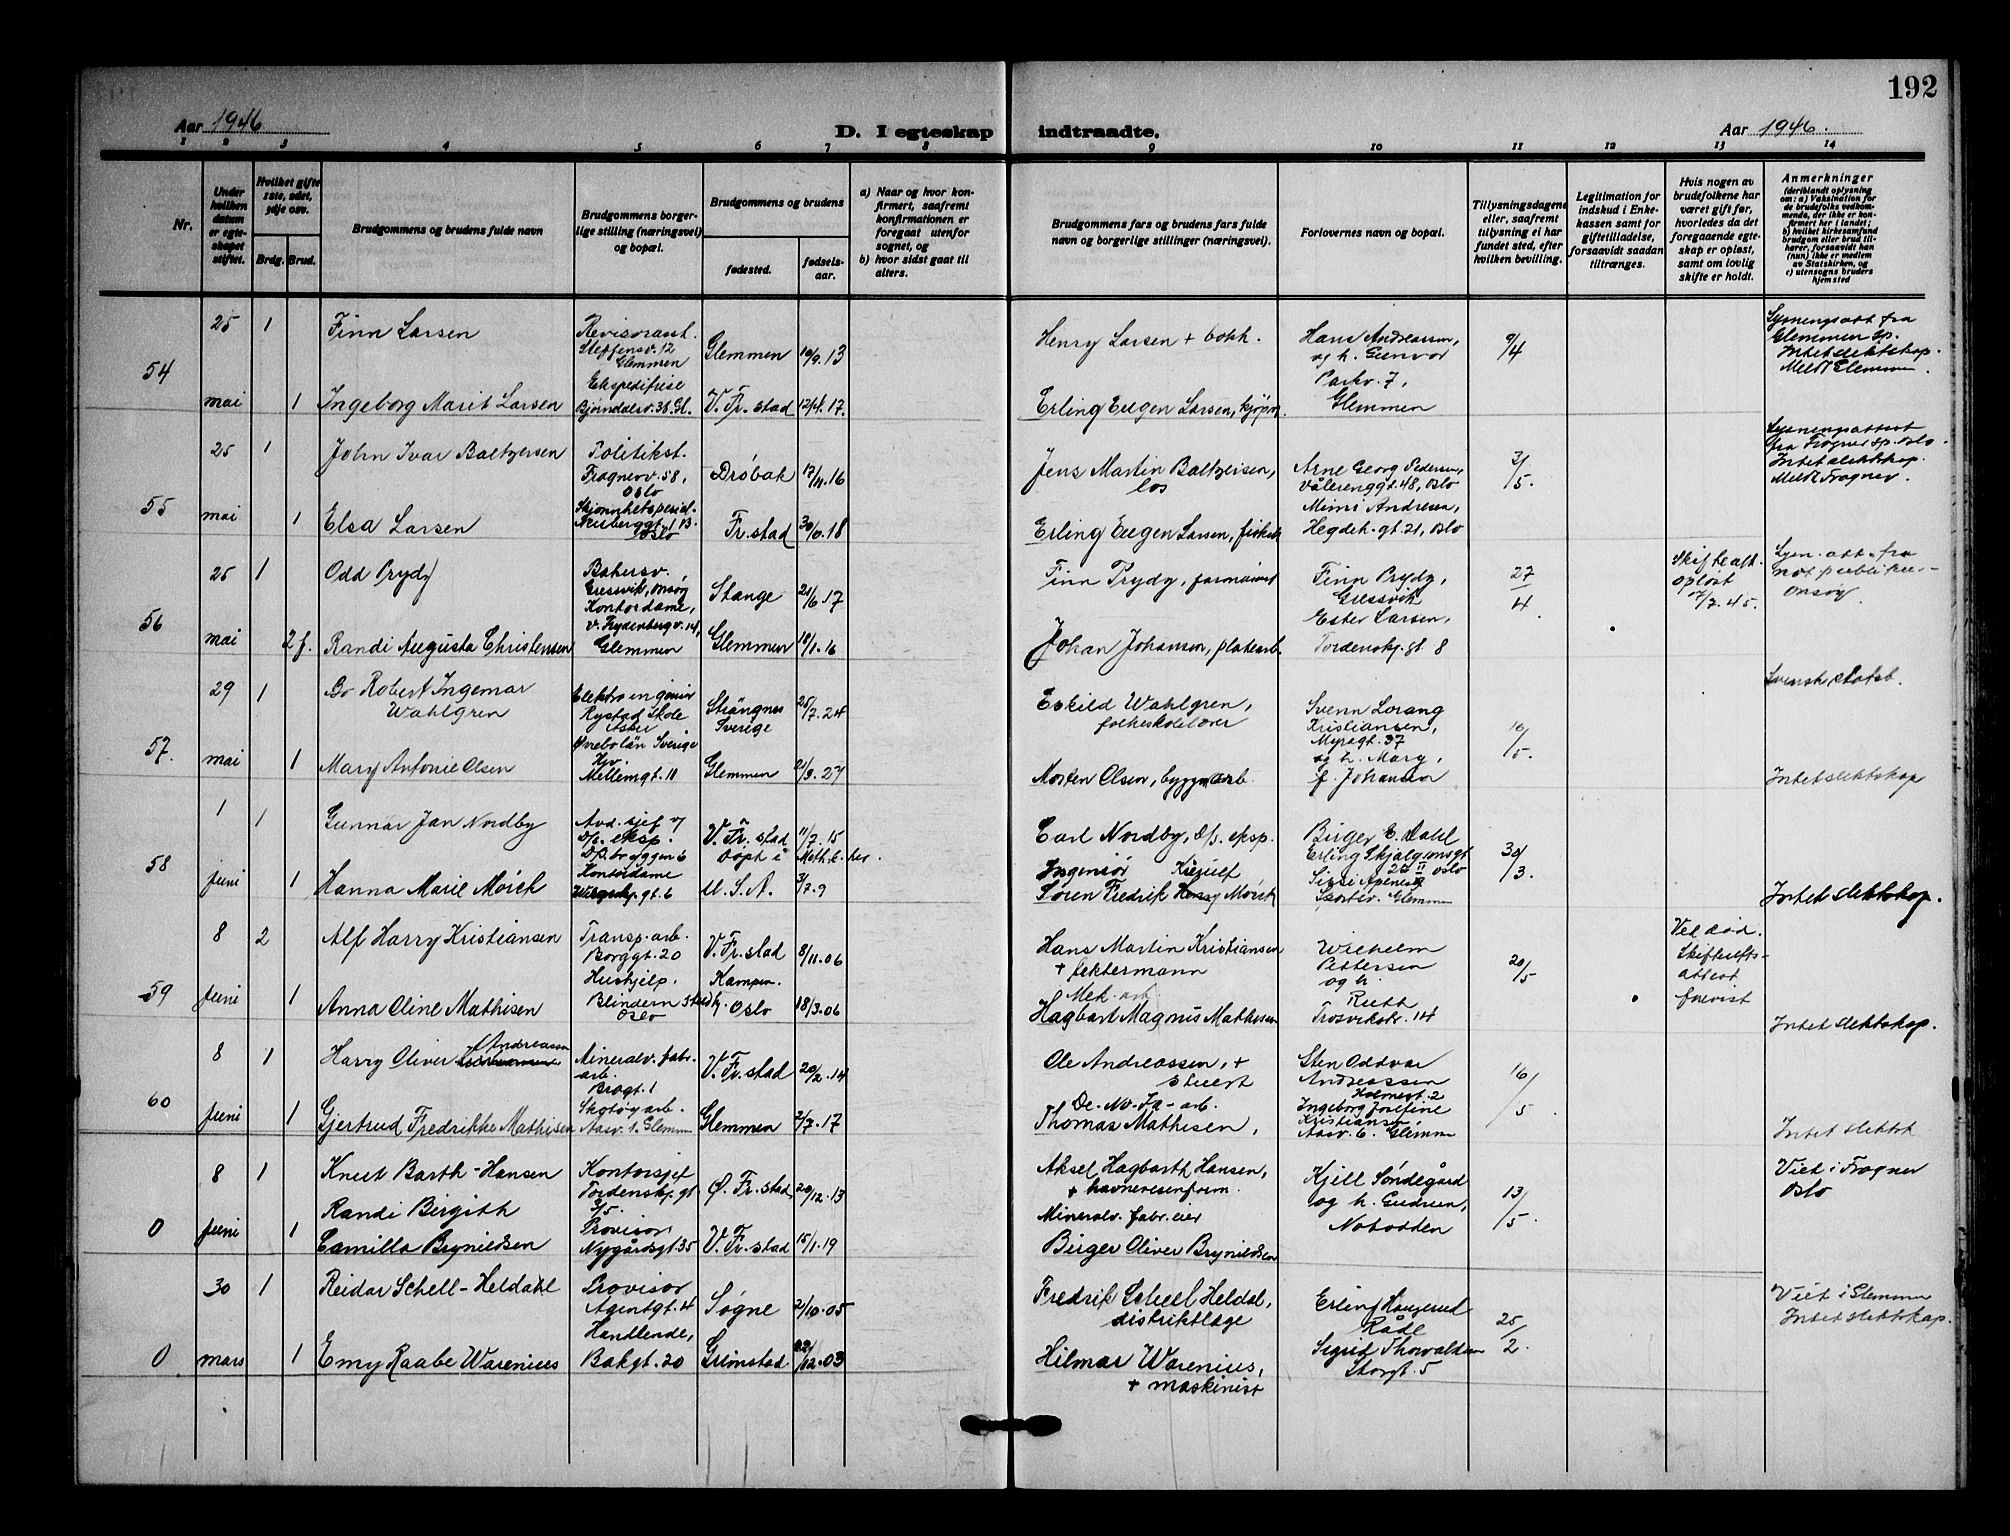 192
Aar 1946
D. I egteskap indtraadte.
Aar 1946.
1 2 3 4 5 6 7 8 9 10 11 12 13 14
Nr.
Under hvilken datum er egteskapet stiftet.
Hvilket gifte 1ste, 2det, 3dje osv.
Brdg. Brud.
Brudgommens og brudens fulde navn
Brudgommens borgerlige stilling (næringsvei) og bopæl.
Brudgommens og brudens
fødested.
fødselsaar.
a) Naar og hvor konfirmert, saafremt konfirmationen er foregaat utenfor sognet, og
b) hvor sidst gaat til alters.
Brudgommens fars og brudens fars fulde navn og borgerlige stillinger (næringsvei).
Forlovernes navn og bopæl.
Tillysningsdagene eller, saafremt tillysning ei har fundet sted, efter hvilken bevilling.
Legitimation for indskud i Enkekassen samt for giftetilladelse, forsaavidt saadan tiltrænges.
Hvis nogen av brudefolkene har været gift før, hvorledes da det foregaaende egteskap er opløst, samt om lovlig skifte er holdt.
Anmerkninger (deriblandt oplysning om: a) Vaksination for de brudefolks vedkommende, der ikke er konfirmert her i landet; b) hvilket kirkesamfund brudgom eller brud tilhører, forsaavidt han (hun) ikke er medlem av Statskirken, og c) utensogns bruders hjemsted
54
25 mai
1
Finn Larsen
Revisorasst.
Steffensv. 12
Glemmen
Glemmen
10/9.13
Henry Larsen + bokh.
Hans Andreassen,
og h. Gunvor
Parkv. 7,
Glemmen
9/4
Lysningsatt fra
Glemmen sp.
Intet slektskap.
Meldt Glemmen
1
Ingeborg Marit Larsen
Ekspeditrise
Bjørndalsv. 36. Gl.
V. Fr.stad
12/4.17.
Erling Eugen Larsen, kjøpm.
55
25 mai
1
John Ivar Baltzersen
Politikst.
Frognerv. 58,
Oslo
Drøbak
17/4.16
Jens Martin Baltzersen,
los
Arne Georg Pedersen,
Vålerenggt. 48, Oslo
Mimi Andresen,
Hegdeh.gt. 21, Oslo
3/5.
Lysningsattest
fra Frogner sp. Oslo.
Intet slektskap.
Meldt Frogner.
1
Elsa Larsen
Oslo
Fr.stad
Erling Eugen Larsen,
56
25 mai
1
Odd Prydz
Bakersv.
Gressvik, Onsøy
Stange
21/6.17
Finn Prydz, formann
Finn Prydz,
Gressvik
Ester Larsen,
Tordenskj.gt 8
27/4.
Skifteatt.
opløst
Lysn. att. fra
Onsøy
2 f.
Randi Augusta Christensen
Kontordame,
v. Frydenbergv. 14,
Glemmen
Glemmen
18/1.16
Johan Johansen, platearb.
57.
29 mai
1
Bo Robert Ingemar
Wahlgren
Elektroingeniør
Rystad Skole
Asker
Strängnes
Sverige
25/7.24
Eskild Wahlgren,
folkeskolelærer
Svenn Lorang
Kristiansen,
Myragt. 37
og h. Mary,
f. Johansen
16/5.
Svensk statsb.
1
Mary Antonie Olsen
Mellemgt. 11
Glemmen
21/3.27
Morten Olsen, byggn.arb.
Intet slektskap
58
1 juni
1
Gunnar Jan Nordby
Avd. sjef v/
D/s. eksp.
D/s. bryggen 6
V. Fr. stad
Døpt i
Meth.k. her.
11/7.15
Carl Nordby, D/s. eksp.
Birger E. Dahl
Erling Skjalgsonsgt
25 II Oslo
30/3.
1
Hanna Marie Mørck
Kontordame
U.S.A.
3/7.9
Ingeniør
Søren Fredrik Mørck
Glemmen
Intet slektskap.
59
8 juni
2
Alf Harry Kristiansen
Transp. arb.
Borggt. 20
V. Fr. stad
8/11.06
Hans Martin Kristiansen
+ fektermann
Wilhelm
Pettersen
og h.
Ruth
Trosvikstr. 14
20/5
Ved død.
Skifteretts-
attest
forevist
1
Anna Oline Mathisen
Hushjelp,
Blindern
Oslo
Kampen
Oslo
18/3.06
Mek. arb.
Hagbart Magnus Mathisen
Intet slektskap.
60
8 juni
1
Harry Oliver Andreassen
Mineralv. fabr.
arb.
Brogt. 1
V. Fr. stad
20/2.14
Ole Andreassen, +
stuert
Sten Oddvar
Andreassen
Holmegt. 2
Ingeborg Josefine
Kristiansen,
Aasv. 6. Glemm
16/5.
1
Gjertrud Fredrikke Mathisen
Skotøyarb.
Aasv. 1. Glemm
Glemmen
2/7.17
De-No-Fa-arb.
Thomas Mathisen,
Intet slektsk
0
8 juni
1
Knut Barth-Hansen
Kontorsjef
Tordenskj.gt
Ø. Fr.stad
20/12.13
Aksel Hagbarth Hansen,
+ havnevesenform.
Kjell Søndegård
og h. Gudrun,
Notodden
13/5.
Viet i Frogner
Oslo
1
Randi Birgith
Camilla Brynildsen
Provisor
Nygårdsgt. 35
V. Fr. stad
15/1.19
Mineralv. fabr. eier
Birger Oliver Brynildsen
0
30 mars
1
Reidar Schell-Heldahl
Provisor
Agentgt. 4
Søgne
2/10.05
Fredrik Scheel Heldal,
distriktlæge
Erling Haugerud
Råde
Sigrid Thorvaldsen
Storgt. 5
25/2.
Viet i Glemmen
Intet slektskap.
1
Emy Raabe Warenius
Handlende,
Bakgt. 20
Grimstad
22/12.03
Hilmar Warenius,
+ maskinist